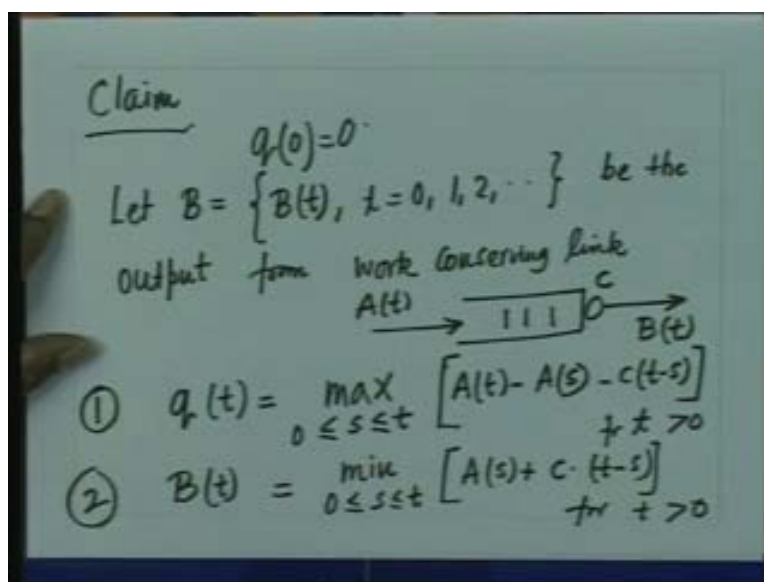 Claim
q(0)=0
Let B = {B(t), t = 0, 1, 2, ..} be the
output from work conserving link
A(t) C B(t)
① q(t) = max 0 ≤ s ≤ t [A(t) - A(s) - c(t-s)] fr t >0
② B(t) = min 0 ≤ s ≤ t [A(s) + c· (t-s)] for t >0